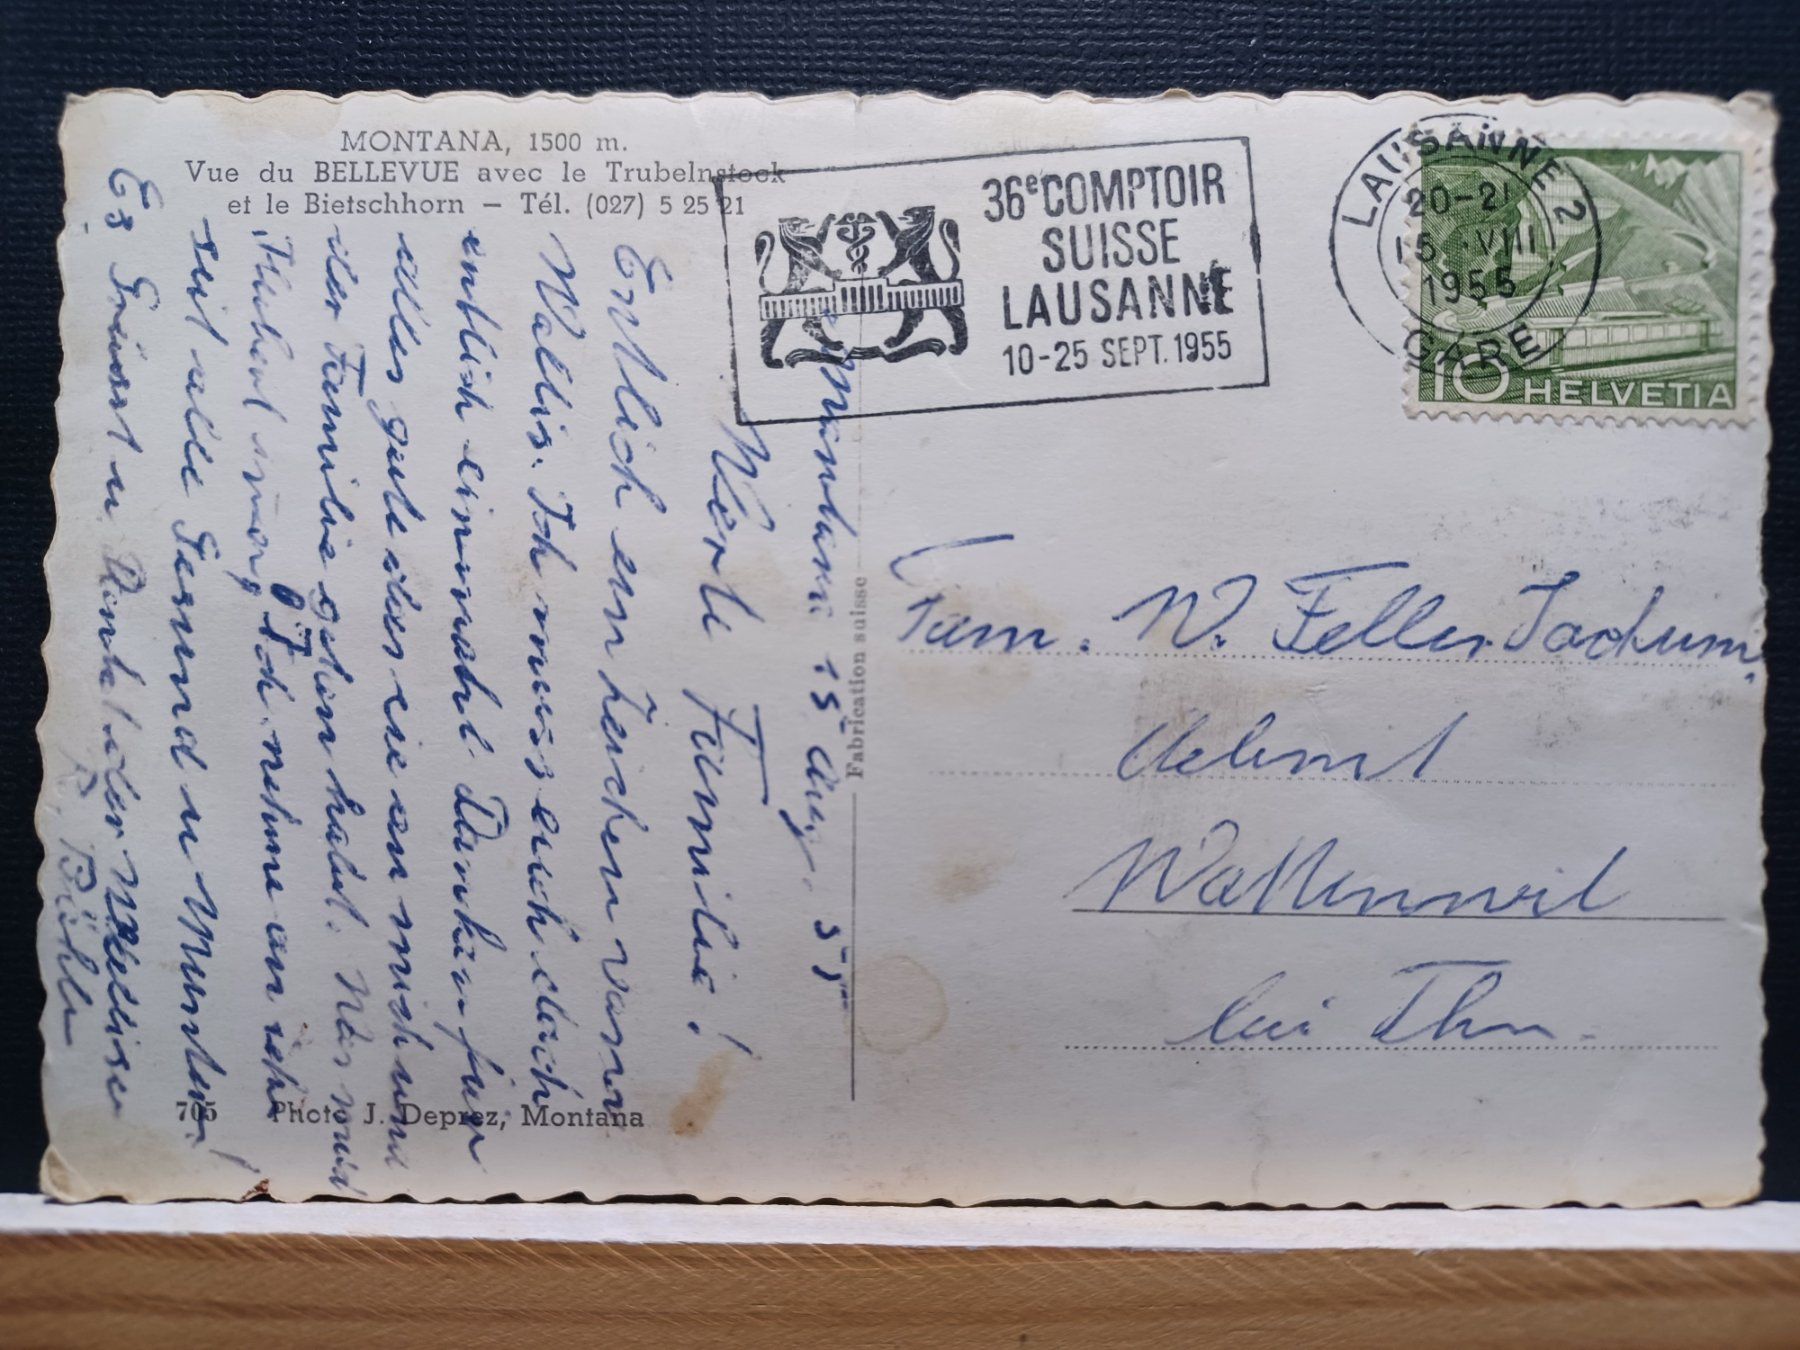 MONTANA, 1500 m.
Vue du BELLEVUE avec le Trubelnstock
et le Bietschhorn – Tél. (027) 5 25 21
36e COMPTOIR
SUISSE
LAUSANNE
10-25 SEPT. 1955
LAUSANNE 2
20-21
15. VIII
1955
GARE
10 HELVETIA
Montana 15 Aug. 55
Werte Familie!
Entlich ein Zeichen vom
Wallis. Ich muss euch doch
entlich einmahl Danken für
alles gute das ihr an mich und
der Familie getan habt.
Ich nehme an ihr
seit alle Gesund u Munter!
Es Grüsst u
R. Bühler
Fabrication suisse
Fam. W. Feller Jachum.
Aebnit
Wattenwil
bei Thun.
705 Photo J. Deprez, Montana